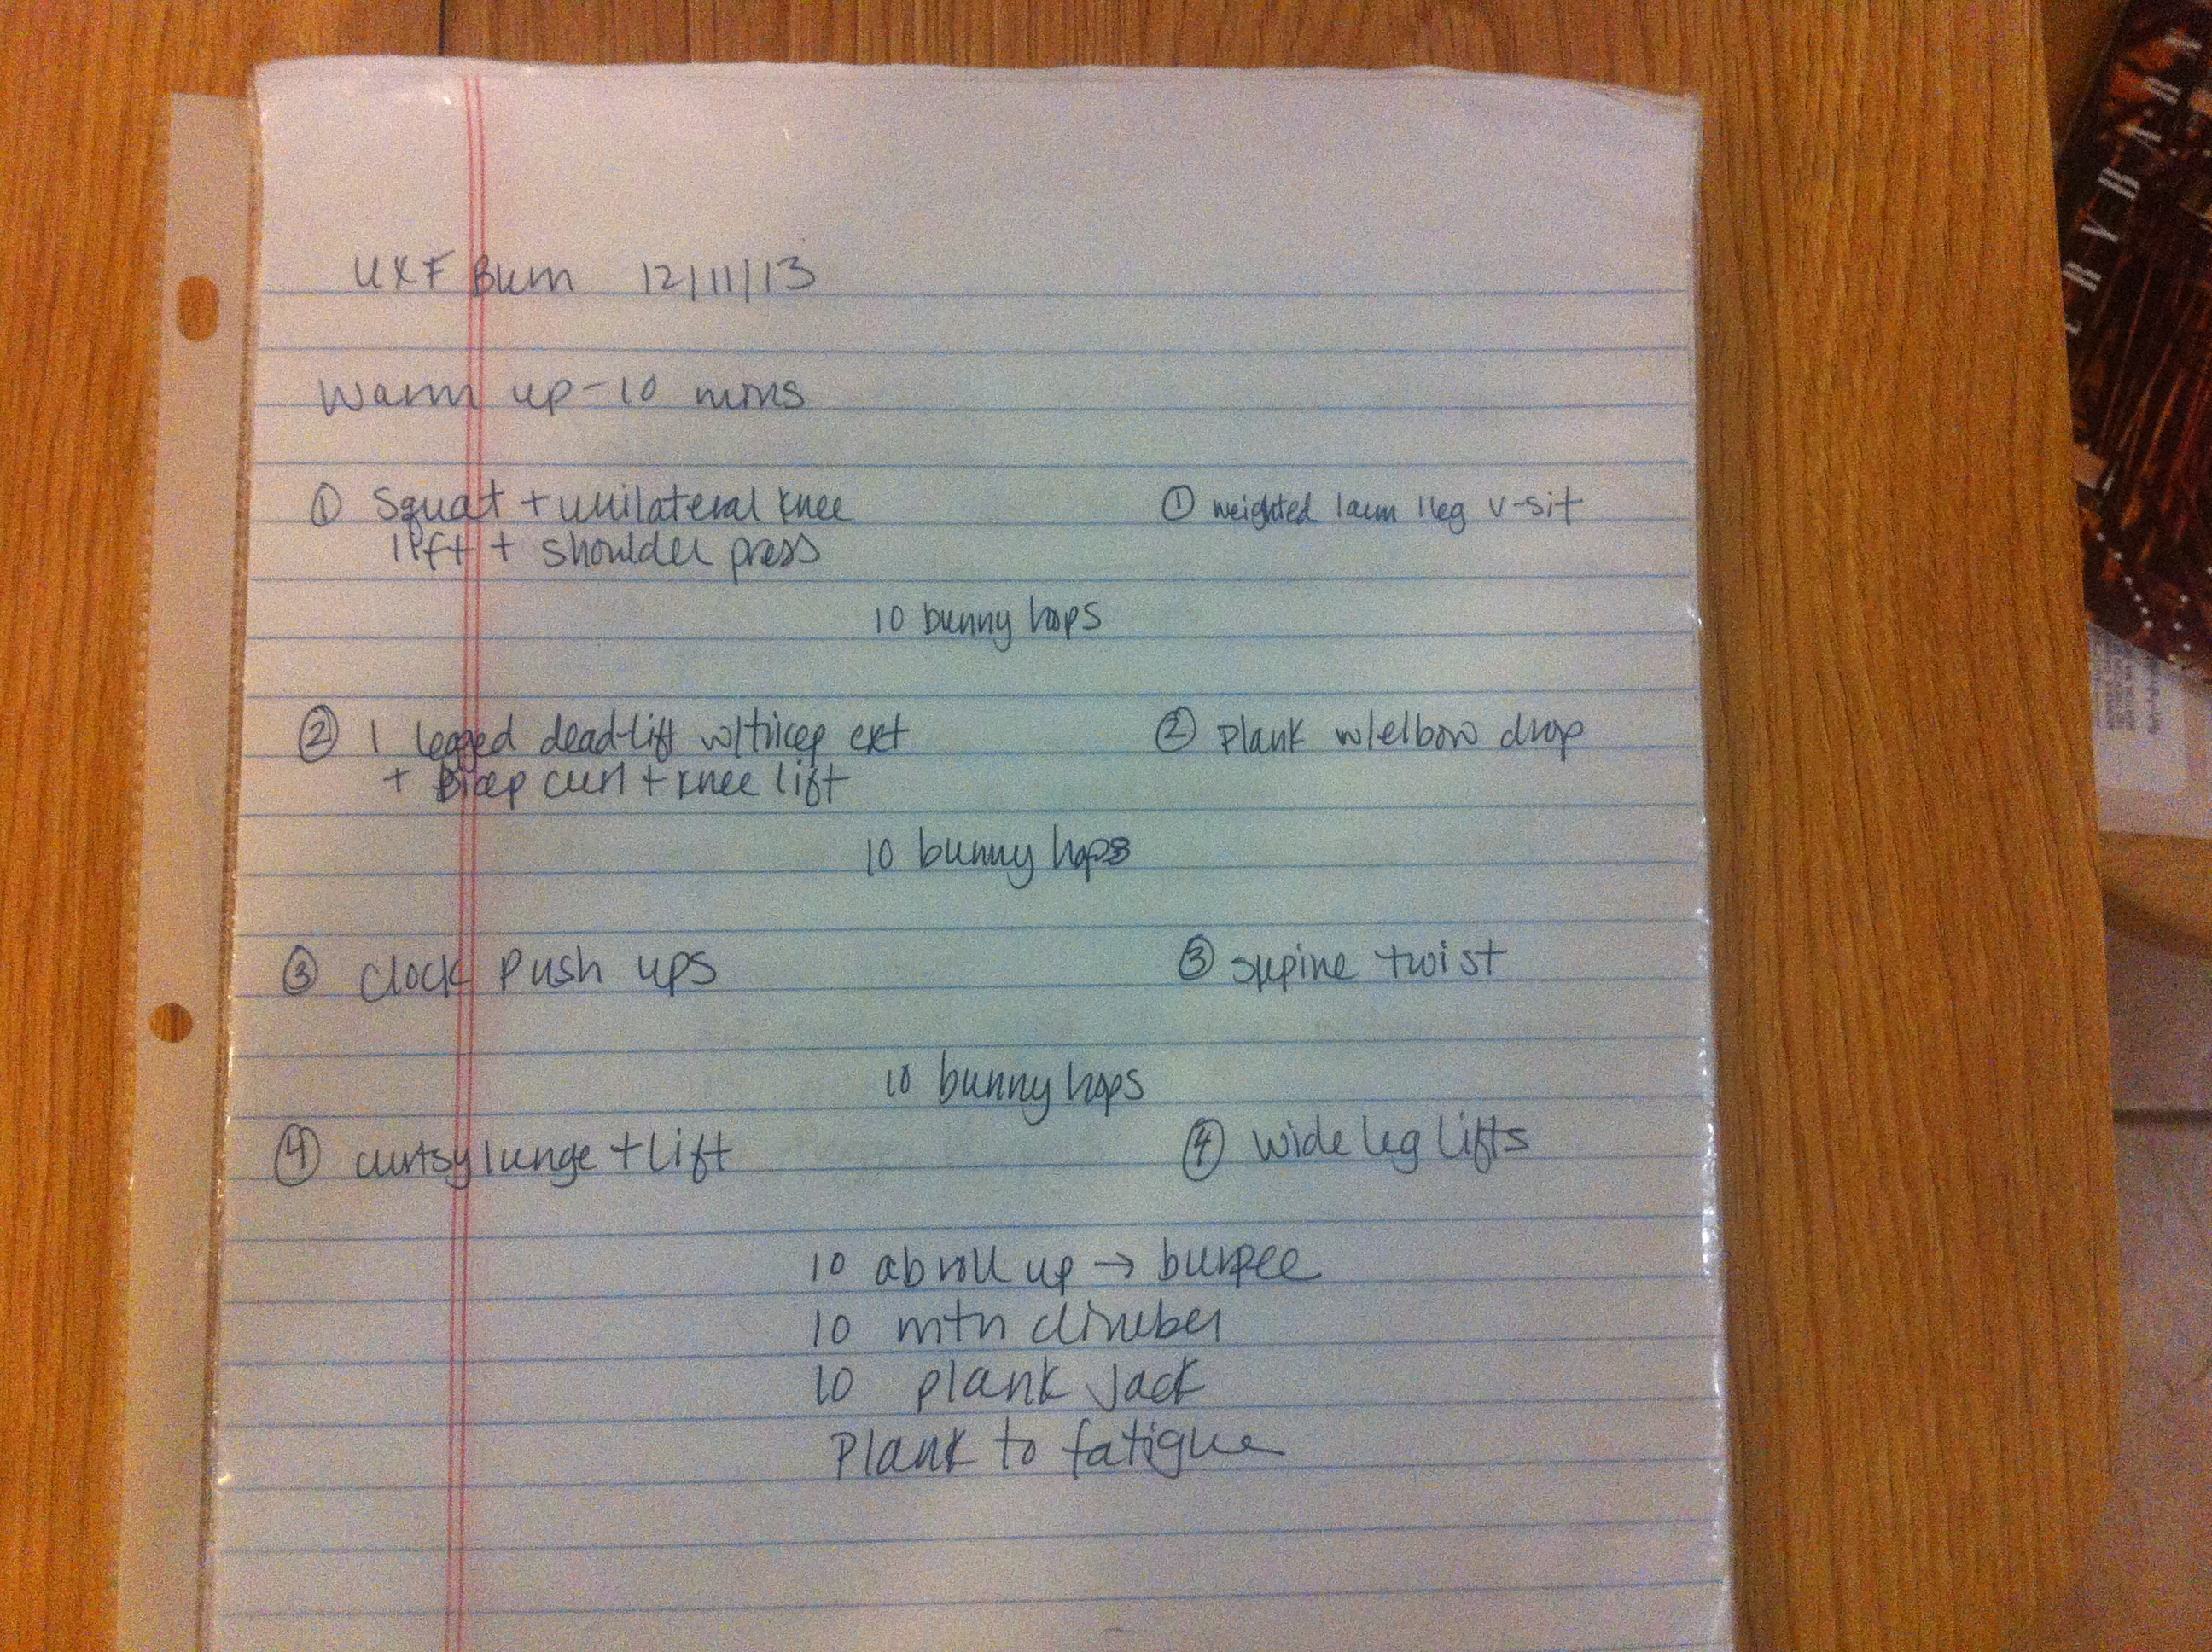 UXF Burn 12/11/13
Warm up - 10 mins
① Squat + unilateral knee
lift + shoulder press
① weighted 1 arm 1 leg v-sit
10 bunny hops
② 1 legged deadlift w/tricep ext
+ Bicep curl + knee lift
② plank w/elbow drop
10 bunny hops
③ clock push ups
③ supine twist
10 bunny hops
④ curtsy lunge + lift
④ wide leg lifts
10 ab roll up → burpee
10 mtn climber
10 plank jack
Plank to fatigue